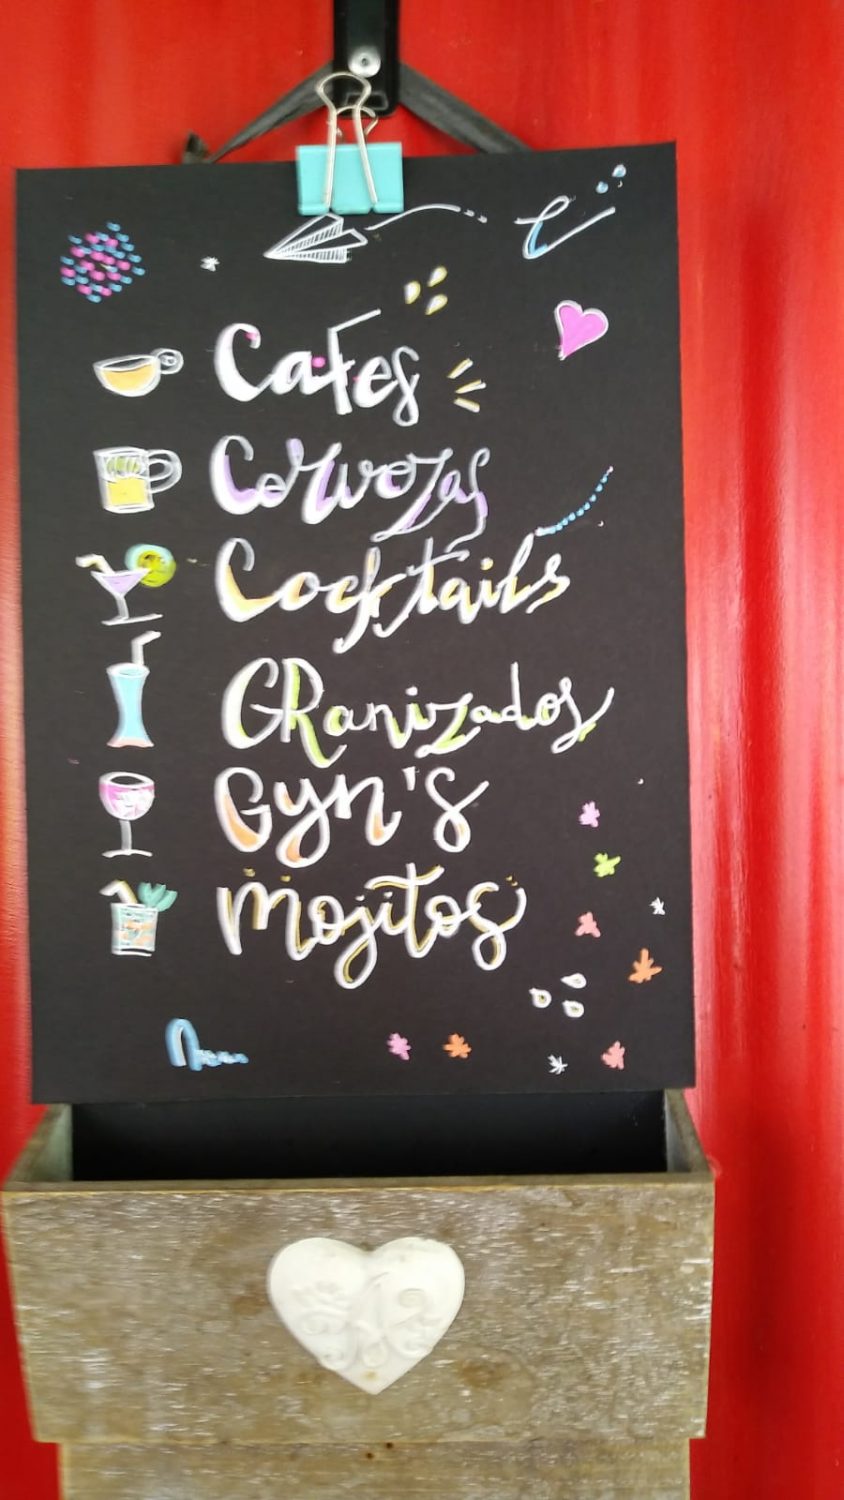 Cafes
Cervezas
Cocktails
GRanizados
Gyn's
Mojitos